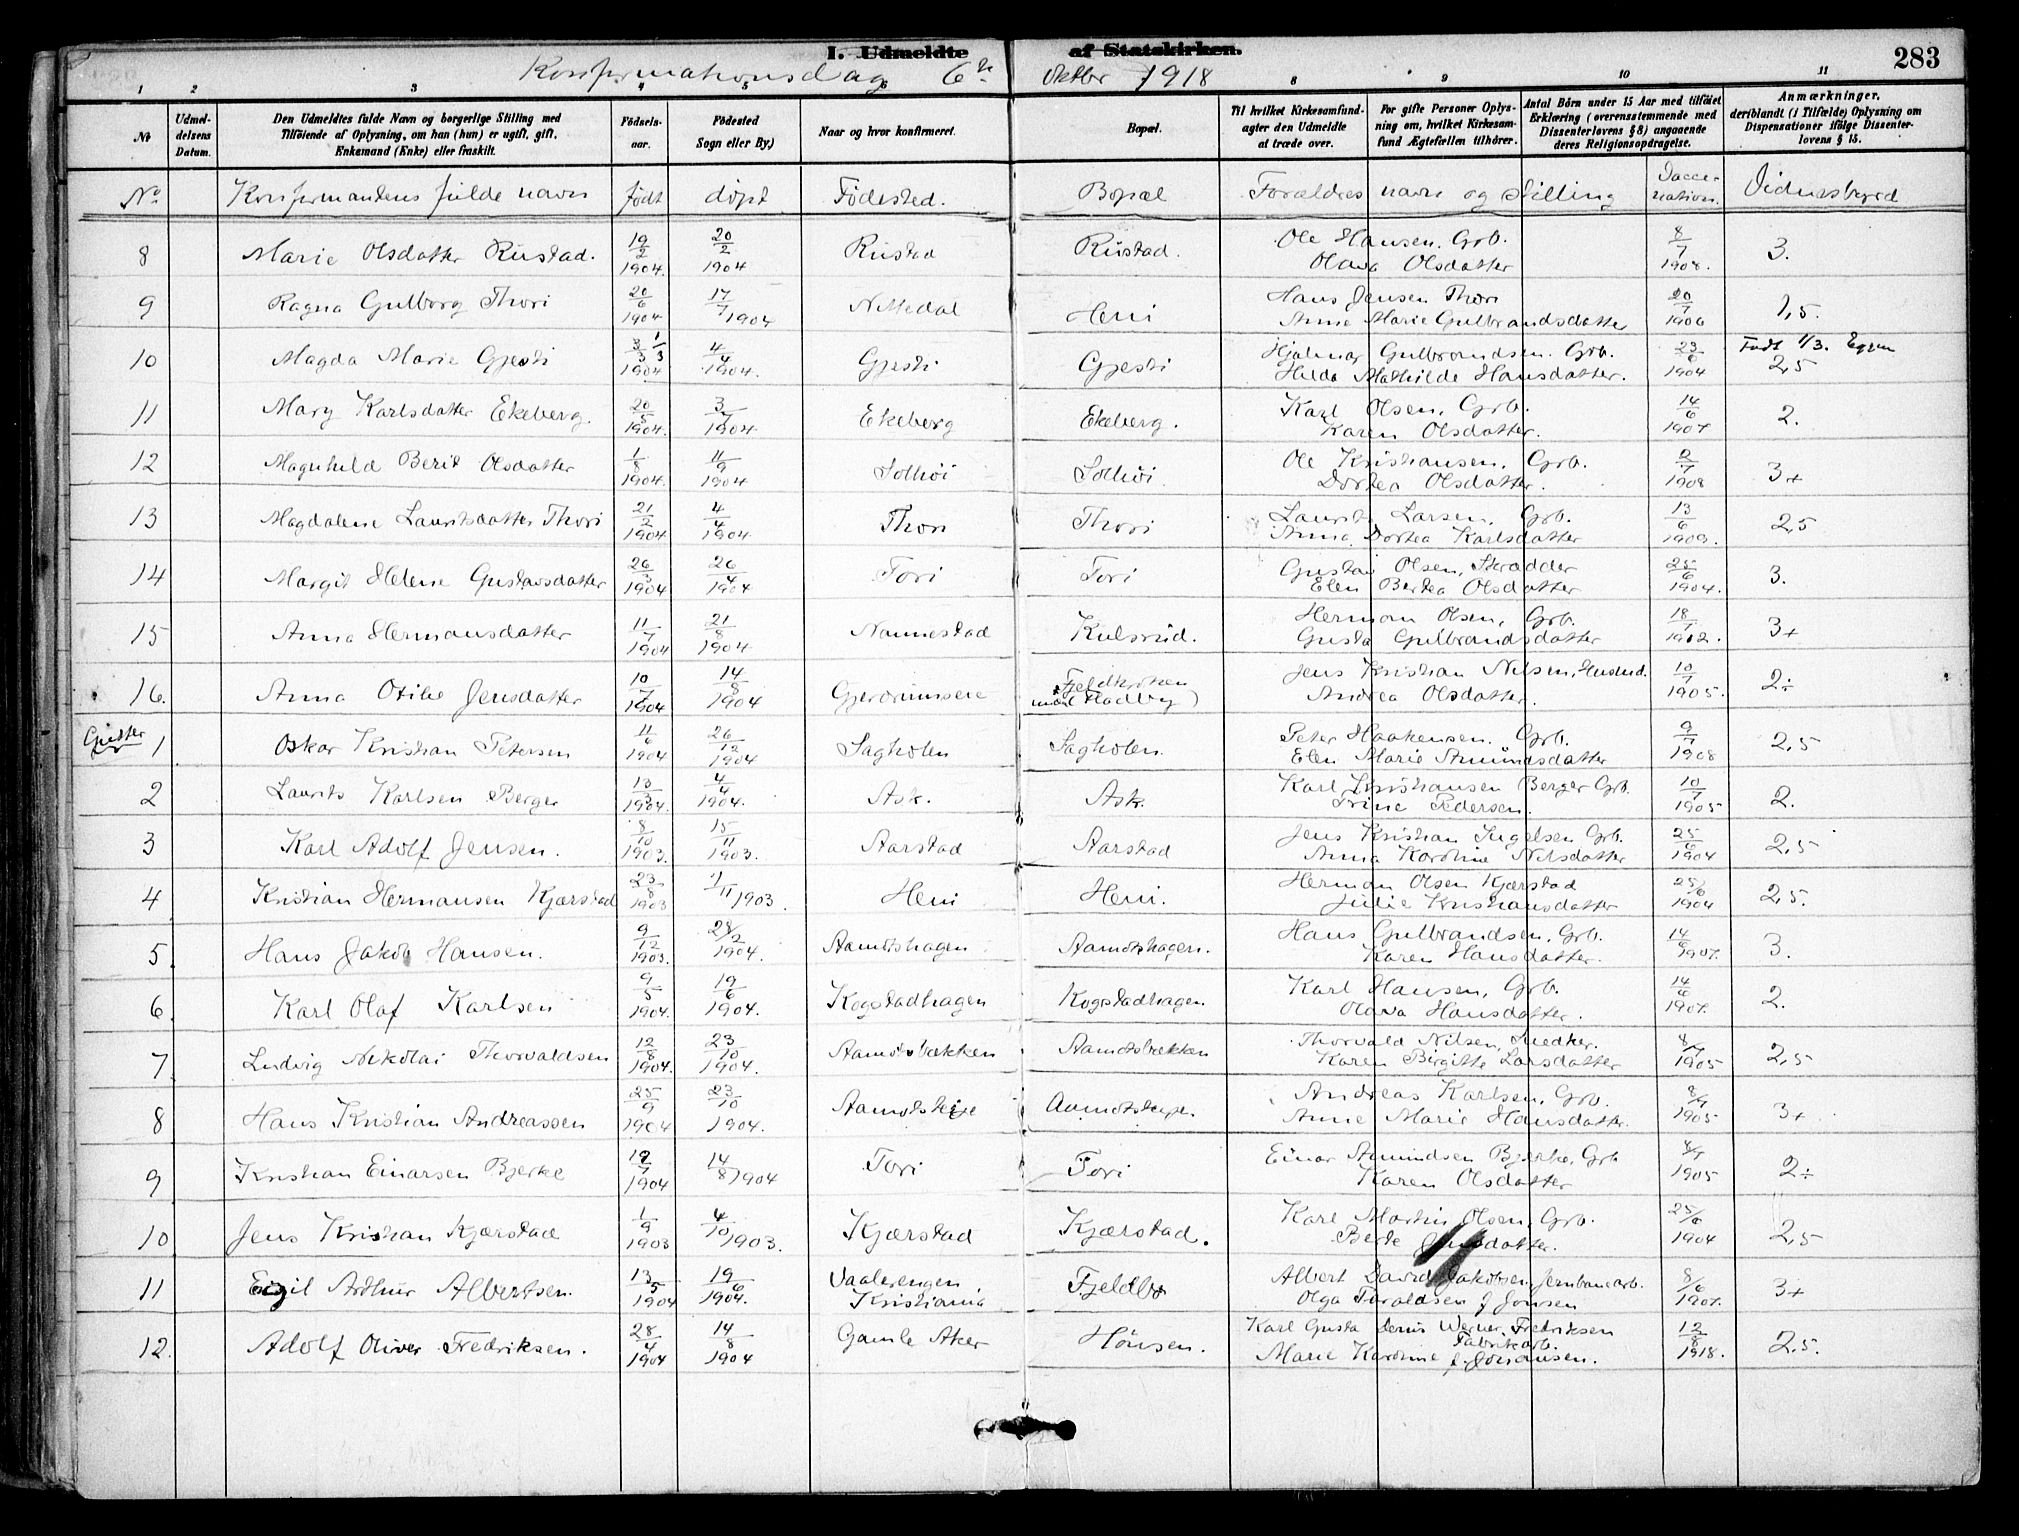 I. Udmeldte af Statskirken.
283
Konfirmationsdag 6te oktbr 1918
1 2 3 4 5 6 8 9 10 11
No
Udmeldelsens Datum.
Den Udmeldtes fulde Navn og borgerlige Stilling med Tilføiende af Oplysning, om han (hun) er ugift, gift, Enkemand (Enke) eller fraskilt.
Fødselsaar.
Fødested Sogn eller By.)
Naar og hvor konfirmeret.
Bopæl.
Til hvilket Kirkesamfund agter den Udmeldte at træde over.
For gifte Personer Oplysning om, hvilket Kirkesamfund Ægtefællen tilhører.
Antal Børn under 15 Aar med tilføiet Erklæring (overensstemmende med Dissenterlovens § 8) angaaende deres Religionsopdragelse.
Anmærkninger, deriblandt (i Tilfælde) Oplysning om Dispensationer ifølge Dissenterlovens § 15.
No. Konfirmandens fulde navn født døpt Fødested. Bopæl Forældres navn og stilling Vaccination. Vidnesbyrd
8 Marie Olsdatter Rustad. 19/2 1904. 20/2 1904 Rustad Rustad. Ole Hansen. Grb. Olava Olsdatter 8/7 1908. 3.
9 Ragna Gulborg Thori 20/6 1904 17/7 1904 Nittedal Heni Hans Jensen Thori Anne Marie Gulbrandsdatter 20/7 1906 1,5.
10 Magda Marie Gjesti 3/3 1/3 1904 4/4 1904. Gjesti Gjesti Hjalmar Gulbrandsen. Grb. Hilda Mathilde Hansdatter. 23/6 1904 Født 1/3. 2,5
11 Mary Karlsdatter Ekeberg. 20/5 1904. 3/7 1904. Ekeberg Ekeberg. Karl Olsen, Grb. Karen Olsdatter. 14/6 1907 2.
12 Magnhild Berit Olsdatter 1/8 1904. 11/9 1904 Solhøi Solhøi. Ole Kristiansen, Grb. Dortea Olsdatter. 2/7 1908 3+
13 Magdalene Lauritsdatter Thori 21/2 1904 4/4 1904 Thori Thori Laurits Larsen, Grb. Anna Dortea Karlsdatter 13/6 1903. 2,5
14 Margit Helene Gustavsdatter 26/3 1904 26/4 1904 Tori Tori Gustav Olsen, Skrædder Elen Bertea Olsdatter 25/6 1904. 3.
15 Anna Hermansdatter 11/7 1904 21/8 1904 Nannestad Kulsrud. Herman Olsen, Grb. Gusta Gulbrandsdatter 18/7 1912. 3+
16. Anna Otilie Jensdatter 10/7 1904 14/8 1904 Gjerdrumseie Fjeldkroken Jens Kristian Nilsen, Husmd. Andrea Olsdatter. 10/7 1905. 2÷
Gutter
1 Oskar Kristian Petersen 11/6 1904 26/12 1904 Sagholen Sagholen. Peter Haakensen. Grb. Elen Marie Amundsdatter 9/7 1908 2,5
2 Laurits Karlsen Berger 13/3 1904. 4/4 1904. Ask. Ask. Karl Kristiansen Berger Grb. Trine Pedersen. 10/7 1905 2.
3 Karl Adolf Jensen. 8/10 1903. 15/11 1903. Aarstad Aarstad Jens Kristian Ingelsen Grb. Anna Karoline Nilsdatter 25/6 1904 2,5
4 Kristian Hermansen Kjærstad 23/8 1903 1/11 1903. Heni Heni. Herman Olsen Kjærstad Julie Kristiansdatter 25/6 1904 2,5.
5 Hans Jakob Hansen. 9/12 1903. 28/2 1904. Aamotshagen Aamotshagen. Hans Gulbrandsen, Grb. Karen Hansdatter. 14/6 1907. 3.
6. Karl Olaf Karlsen 9/5 1904. 19/6 1904. Kogstadhagen Kogstadhagen. Karl Hansen, Grb. Olava Hansdatter. 14/6 1907. 2.
7 Ludvig Nikolai Thorvaldsen 12/8 1904. 23/10 1904. Aamotsbækken Aamotsbækken Thorvald Nilsen, Snedker. Karen Birgitte Larsdatter 8/7 1905 2,5
8 Hans Kristian Andreassen 25/9 1904 23/10 1904. Aamotseie Aamotseie. Andreas Karlsen, Grb. Anne Marie Hansdatter. 8/7 1905 3+
9 Kristian Einarsen Bjerke 12/7 1904 14/8 1904 Tori Tori Einar Amundsen Bjerke, Grb Karen Olsdatter 8/7 1905 2÷
10 Jens Kristian Kjærstad 1/9 1903 4/10 1903. Kjærstad Kjærstad. Karl Martin Olsen, Grb. Berte Jensdatter. 25/6 1904 2,5
11 Eigil Arthur Albertsen. 13/5 1904 19/6 1904. Vaalerengen Kristiania Fjeldbo Albert David Jakobsen, Jernbanearb. Olga Taraldsen f. Jonsen 8/6 1907. 3+
12. Adolf Oliver Fredriksen. 28/4 1904 14/8 1904 Gamle Aker Hønsen. Karl Gusta Denis Werner Fredriksen Fabrikarb. Marie Karoline f. Johansen. 12/8 1918. 2,5.